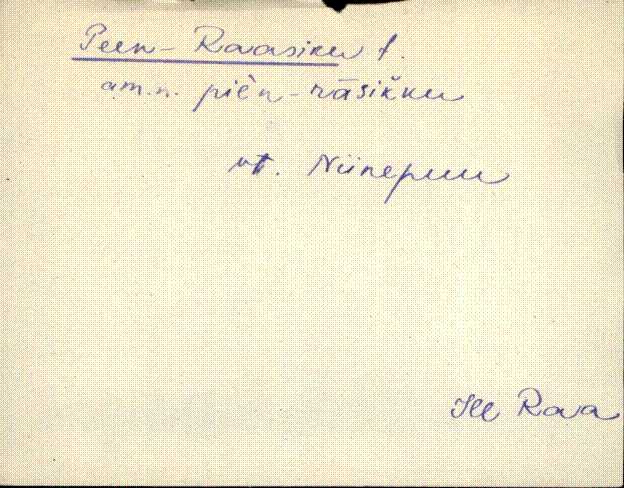 Peen-Raasiku t.
am.n. pièn-rāsikku
vt. Niinepuu
Ill Rava